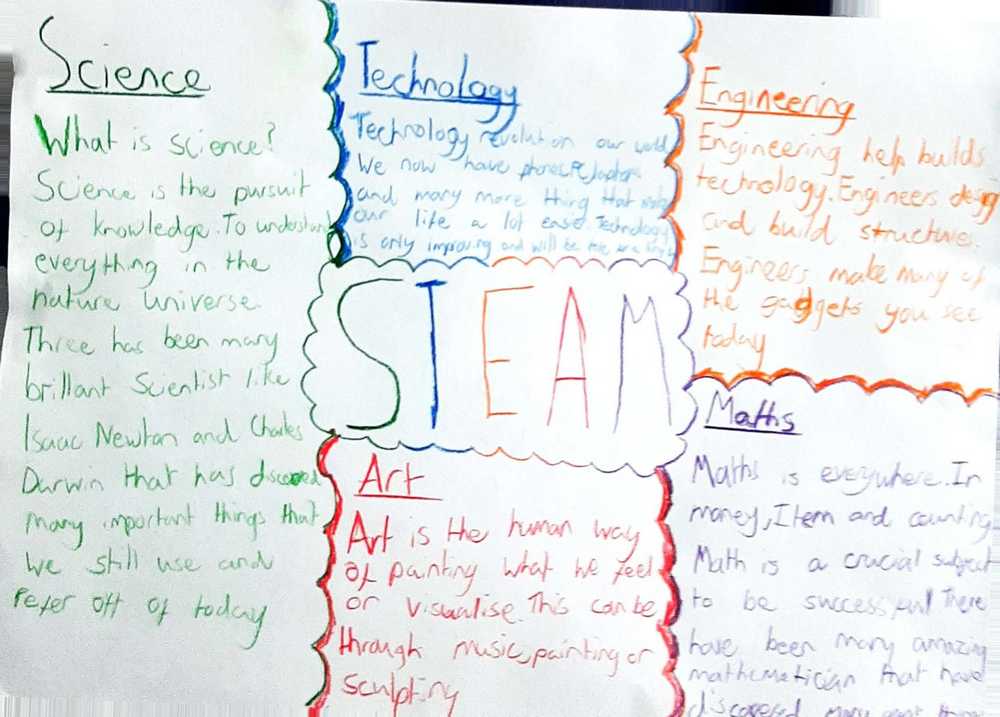 Science
What is science?
Science is the pursuit
of knowledge. To understand
everything in the
nature universe.
Three has been many
brillant Scientist like
Isaac Newton and Charles
Darwin that has discovered
many important things that
we still use and
refer off of today
Technology
Technology revolution our world
We now have phones, laptops
and many more thing that make
our life a lot easier. Technology
is only improving and will be
Engineering
Engineering help builds
technology. Engineers design
and build structures.
Engineers make many of
the gadgets you see
today
STEAM
Art
Art is the human way
of painting what we feel
or visualise. This can be
through music, painting or
sculpting
Maths
Maths is everywhere. In
money, Item and counting
Math is a crucial subject
to be successful There
have been many amazing
mathematician that have
discovered many great things